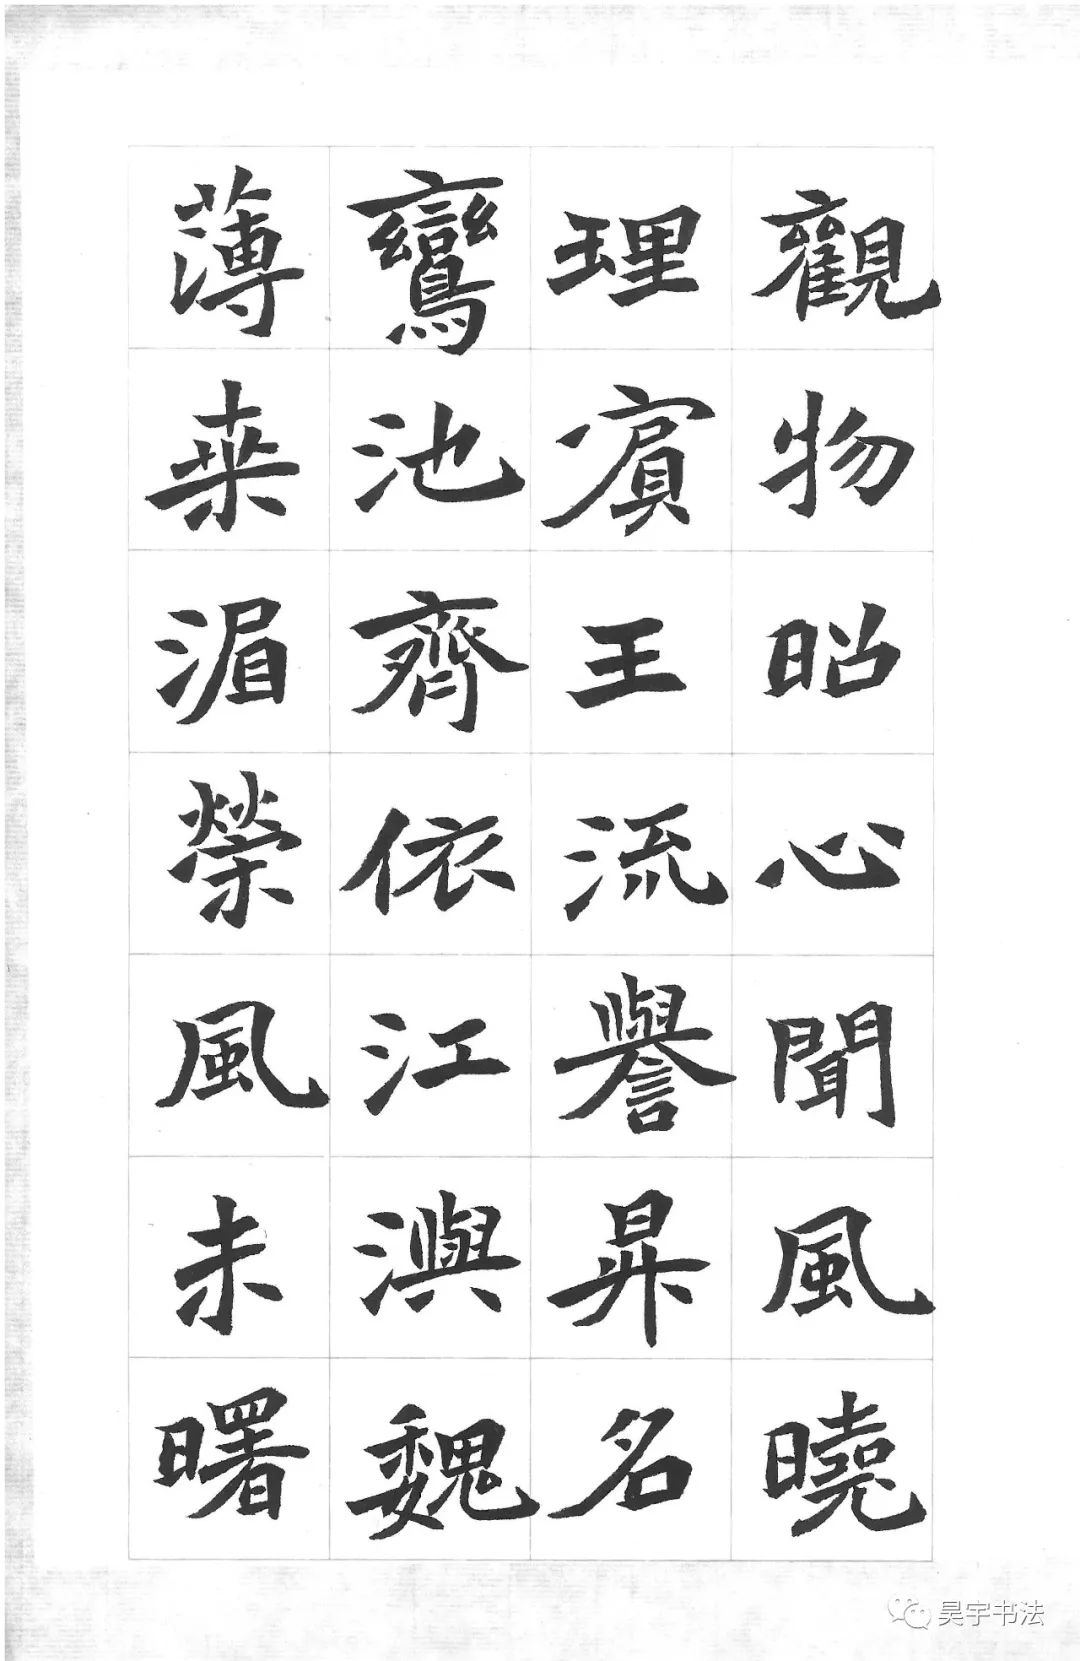 觀物昭心聞風曉
理賔王流譽昇名
鸞池齊依江魏
薄桒湄榮風未曙
昊宇书法